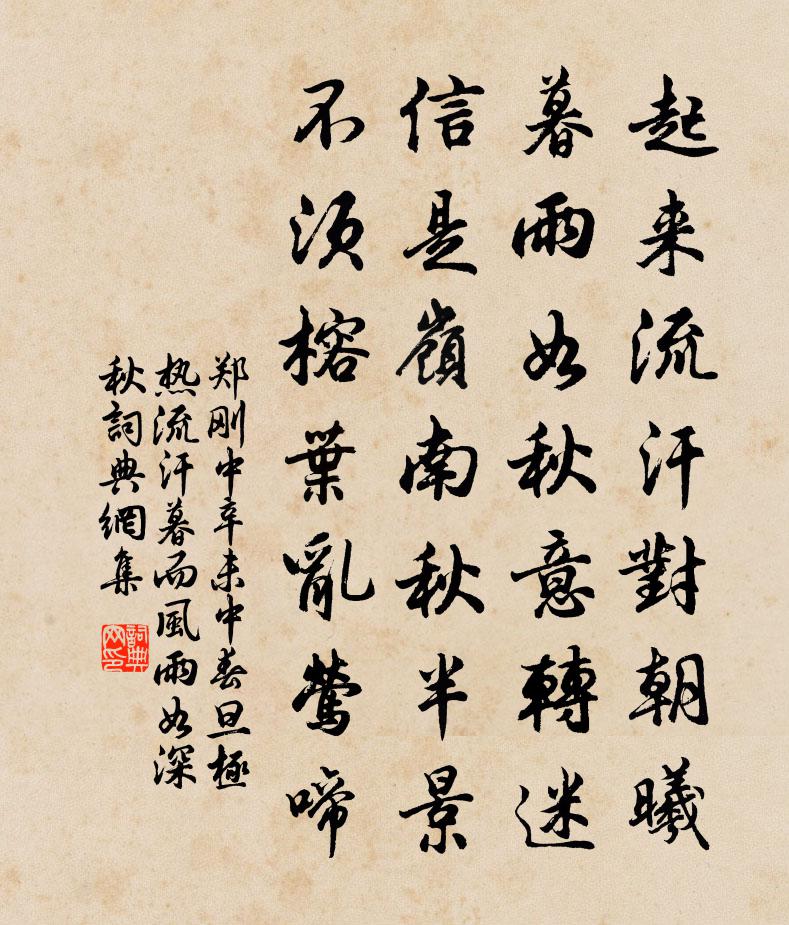 起来流汗對朝曦
暮雨如秋意轉迷
信是嶺南秋半景
不須榕葉亂鶯啼
郑刚中辛未中春旦極
热流汗暮而風雨如深
秋詞典網集
詞典
网印